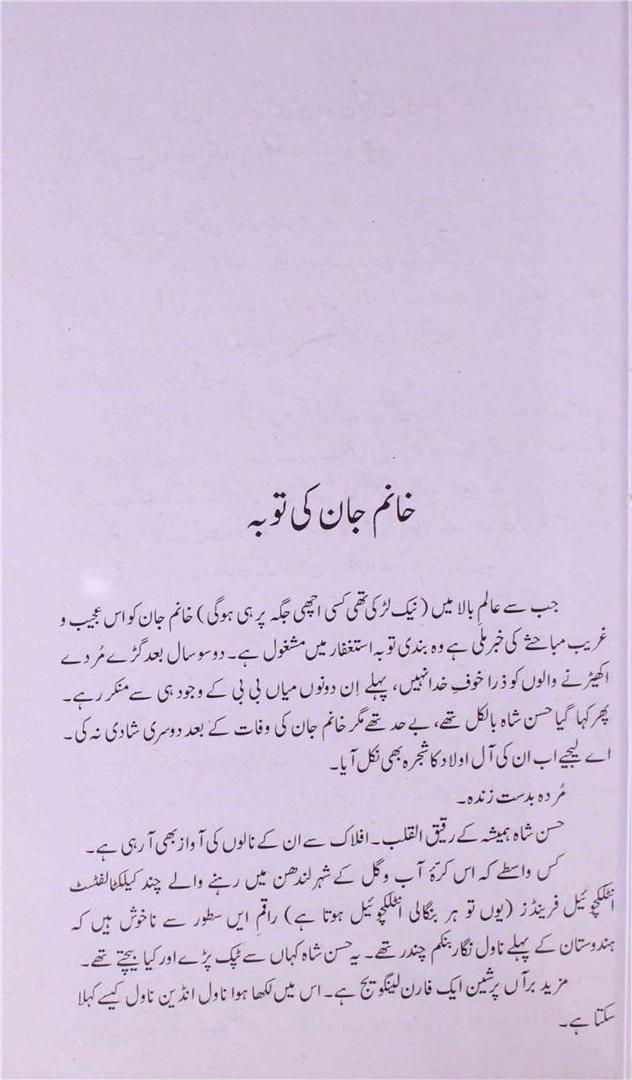 خانم جان کی توبہ
جب سے عالمِ بالا میں (نیک لڑکی تھی کسی اچھی جگہ پر ہی ہوگی) خانم جان کو اس عجیب و
غریب مباحثے کی خبر ملی ہے وہ بندی توبہ استغفار میں مشغول ہے۔ دو سو سال بعد گڑے مُردے
اکھیڑنے والوں کو ذرا خوفِ خدا نہیں، پہلے اِن دونوں میاں بی بی کے وجود ہی سے منکر رہے۔
پھر کہا گیا حسن شاہ بالکل تھے، بے حد تھے مگر خانم جان کی وفات کے بعد دوسری شادی نہ کی۔
اے لیجیے اب ان کی آل اولاد کا شجرہ بھی نکل آیا۔
مُردہ بدست زندہ۔
حسن شاہ ہمیشہ کے رقیق القلب۔ افلاک سے ان کے نالوں کی آواز بھی آ رہی ہے۔
کس واسطے کہ اس کرۂ آب و گل کے شہر لندھن میں رہنے والے چند کیلکٹا لفٹسٹ
انٹلکچوئیل فرینڈز (یوں تو ہر بنگالی انٹلکچوئیل ہوتا ہے) راقم ایں سطور سے ناخوش ہیں کہ
ہندوستان کے پہلے ناول نگار بنکم چندر تھے۔ یہ حسن شاہ کہاں سے ٹپک پڑے اور کیا بیچتے تھے۔
مزید برآں پرشین ایک فارن لینگویج ہے۔ اس میں لکھا ہوا ناول انڈین ناول کیسے کہلا
سکتا ہے۔